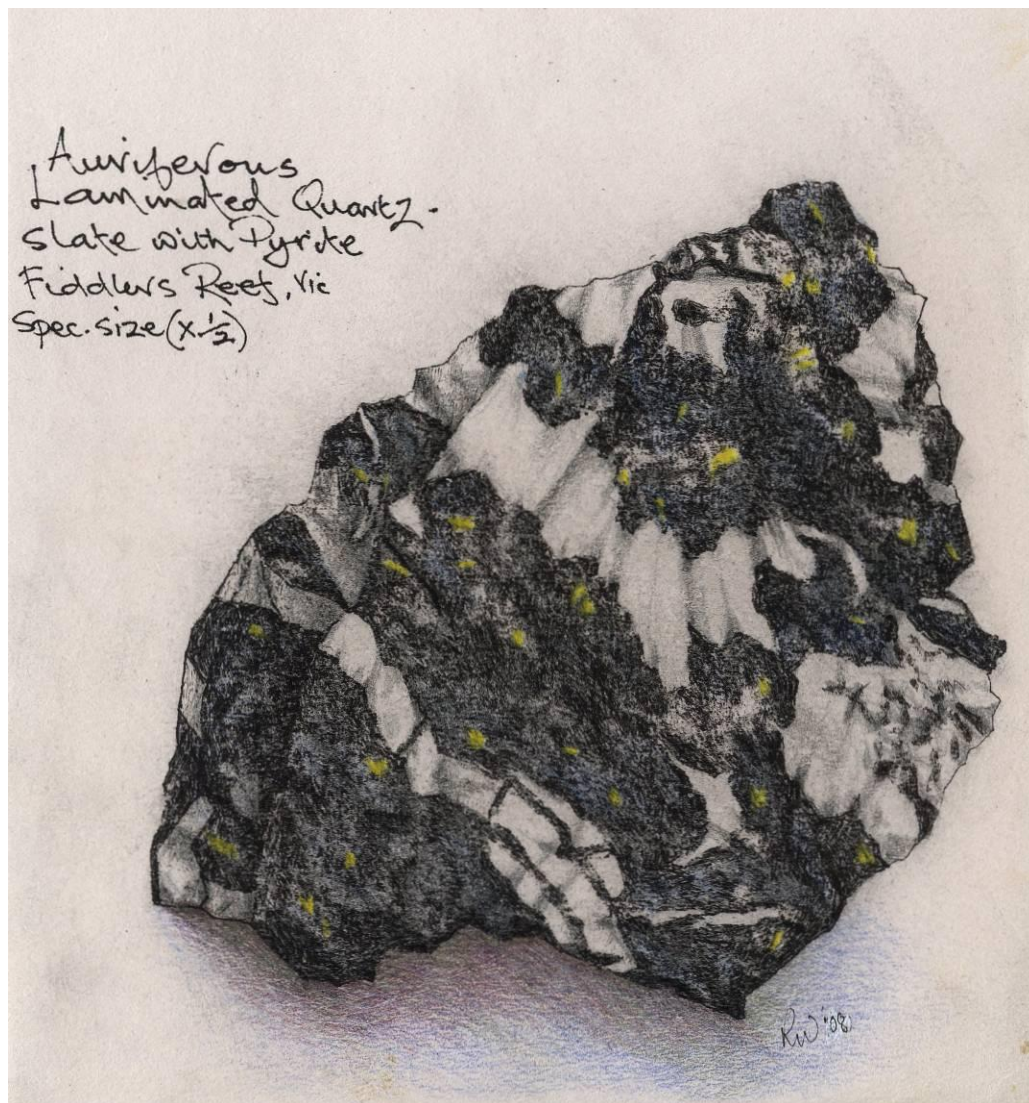 Auriferous
Laminated Quartz-
slate with Pyrite
Fiddlers Reef, Vic
Spec. size (x ½)
RW '08